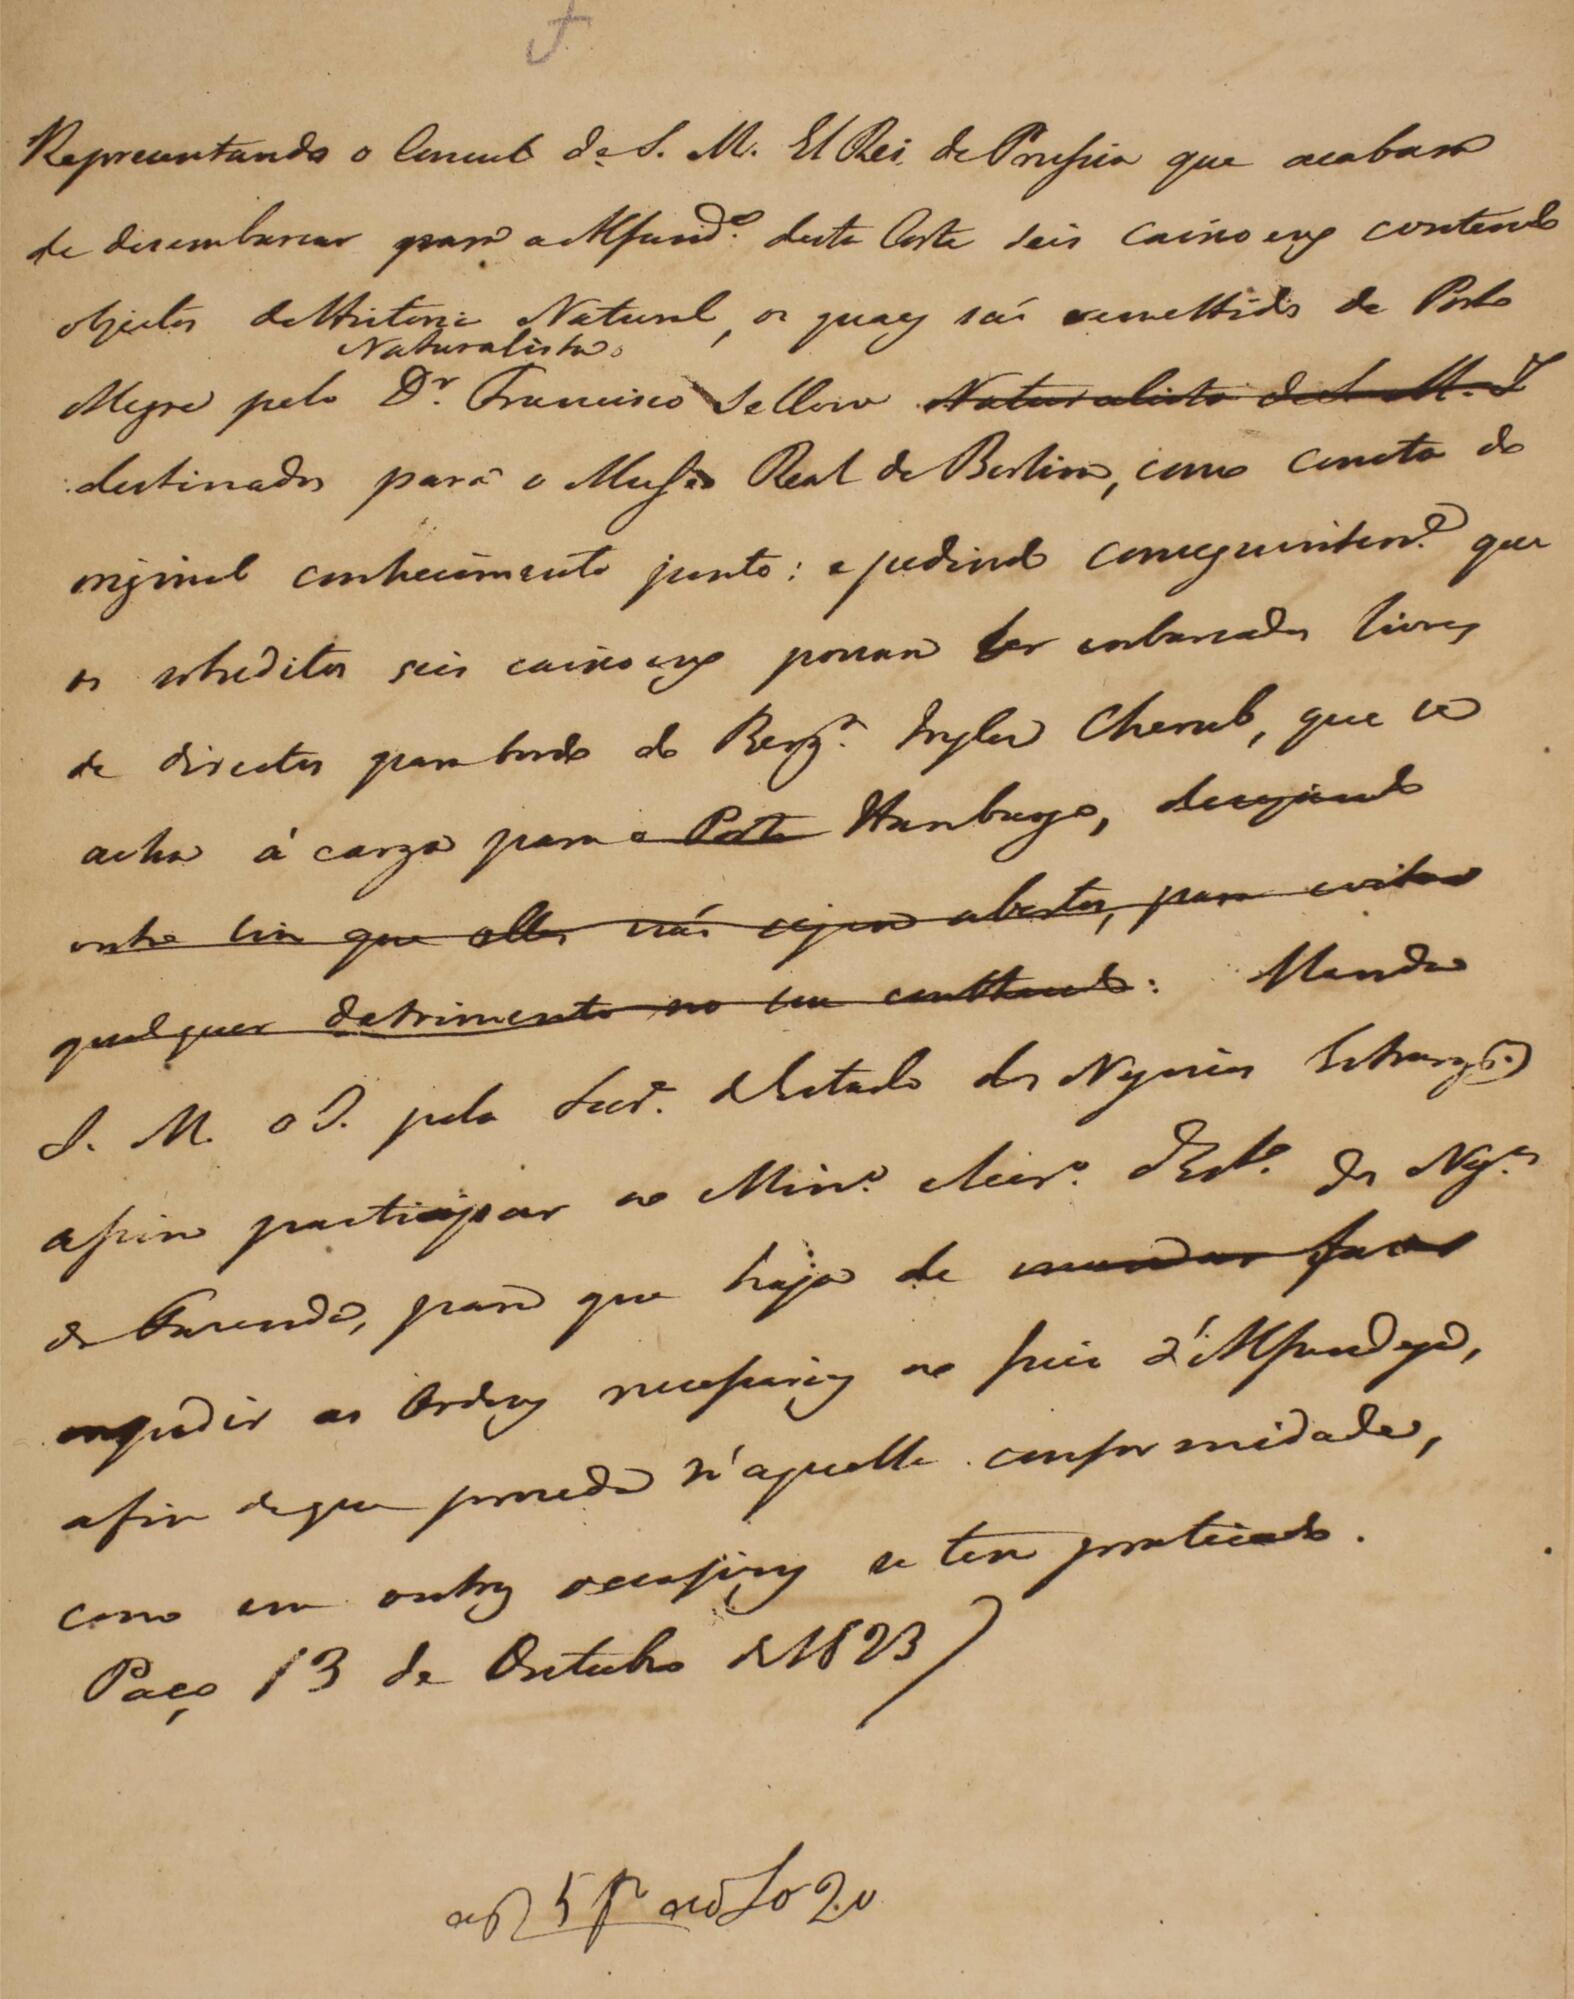 Representando o Consul de S. M. El Rei de Prussia que acabam
de desembarcar para a Alfand.ª desta Corte seis caixoens contendo
objectos de Historia Natural, os quaes sáo remettidos de Porto
Naturalista
Alegre pelo Dr. Francisco Sellow Naturalista de S. M. I
destinados para o Museo Real de Berlim, como consta do
original conhecimento junto: e pedindo conseguintem.e que
os sobreditos seis caixoens possam ser embarcados livres
de direitos para bordo do Berg.m Inglez Cherub, que se
acha á carga para o Porto Hamburgo, desejando
outro sim que elles náo sejam abertos, para evitar
qualquer detrimento no seu conttheudo: Manda
S. M. o I. pela Secr.a d'Estado dos Negocios Estrang.os
assim participar ao Min.o e Secr.o d'Est.o dos Neg.os
da Fazenda, para que haja de mandar fazer
expedir as Ordens necessarias ao Juiz d'Alfandega,
afim de que proceda n'aquella conformidade,
como em outras occasioens se tem praticado.
Paço 13 de Outubro de 1823